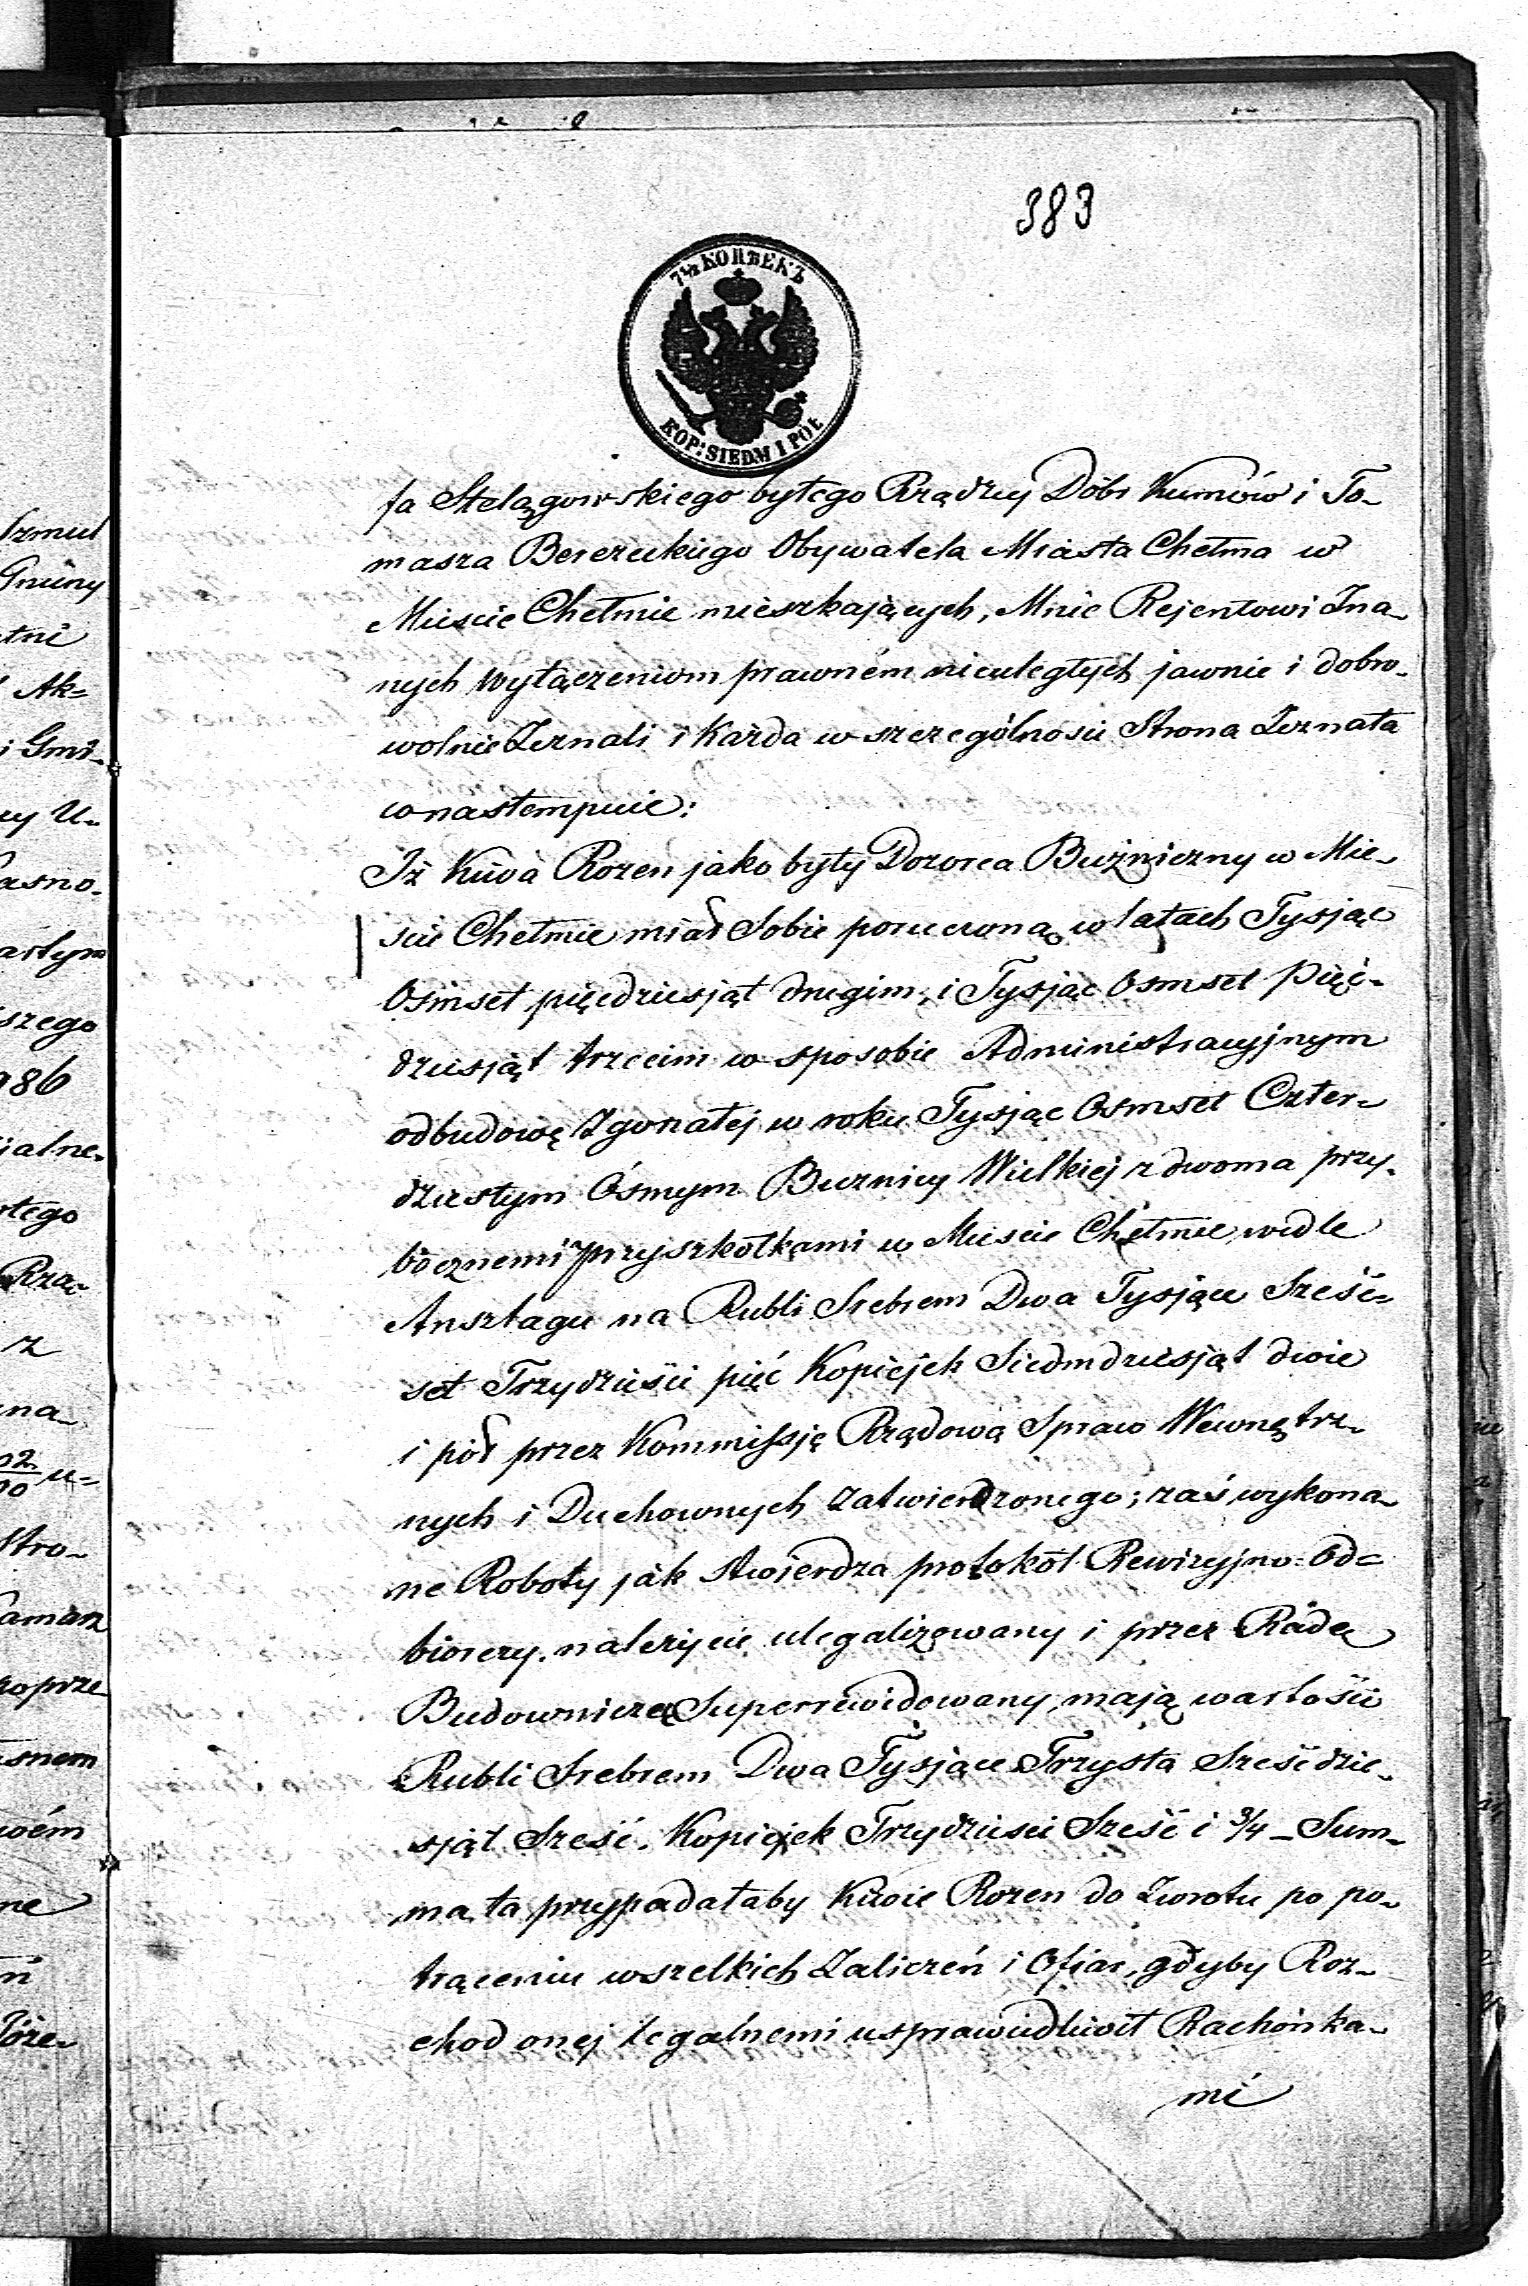 383
7½ КОПѢЕКЪ
KOP: SIEDM I PÓŁ
fa Stelągowskiego byłego Rządzcy Dóbr Kumów i To-
masza Bereżeckiego Obywatela Miasta Chełma w
Mieście Chełmie mieszkających, Mnie Rejentowi Zna-
nych wyłączeniom prawném nieuległych jawnie i dobro-
wolnie Zeznali i Każda w szczególności Strona Zeznała
co nastempuie:
Iż Kiwa Rozen jako były Dozorca Bużniczny w Mie-
ście Chełmie miał Sobie poruczoną w latach Tysjąc
Osmset pięćdziesjąt drugim, i Tysjąc Osmset pięć-
dziesjąt trzecim w sposobie Administracyjnym
odbudowę Zgorzałej w roku Tysjąc Osmset Czter-
dziestym Ósmym Buznicy Wielkiej z dwoma przy-
bocznemi przyszkołkami w Mieście Chełmie, wedle
Ansztagu na Rubli Srebrem Dwa Tysjące Sześć-
set Trzydzieści pięć Kopiejek Siedmdziesjąt dwie
i pół przez Kommissję Rządową Spraw Wewnętrz-
nych i Duchownych zatwierdzonego; zaś wykona-
ne Roboty jak stwierdza protokół Rewizyjno-Od-
biorczy, należycie ulegalizowany i przez Radę
Budowniczą Superrewidowany, mają wartości
Rubli Srebrem Dwa Tysjące Trzysta Sześćdzie-
sjąt Sześć, Kopiejek Trzydzieści Sześć i 3/4 - Sum-
ma ta przypadałaby Kiwie Rozen do Zwrotu po po-
trąceniu wszelkich Zaliczeń i Ofiar, gdyby Roz-
chod onej legalnemi usprawiedliwił Rachónka-
mi